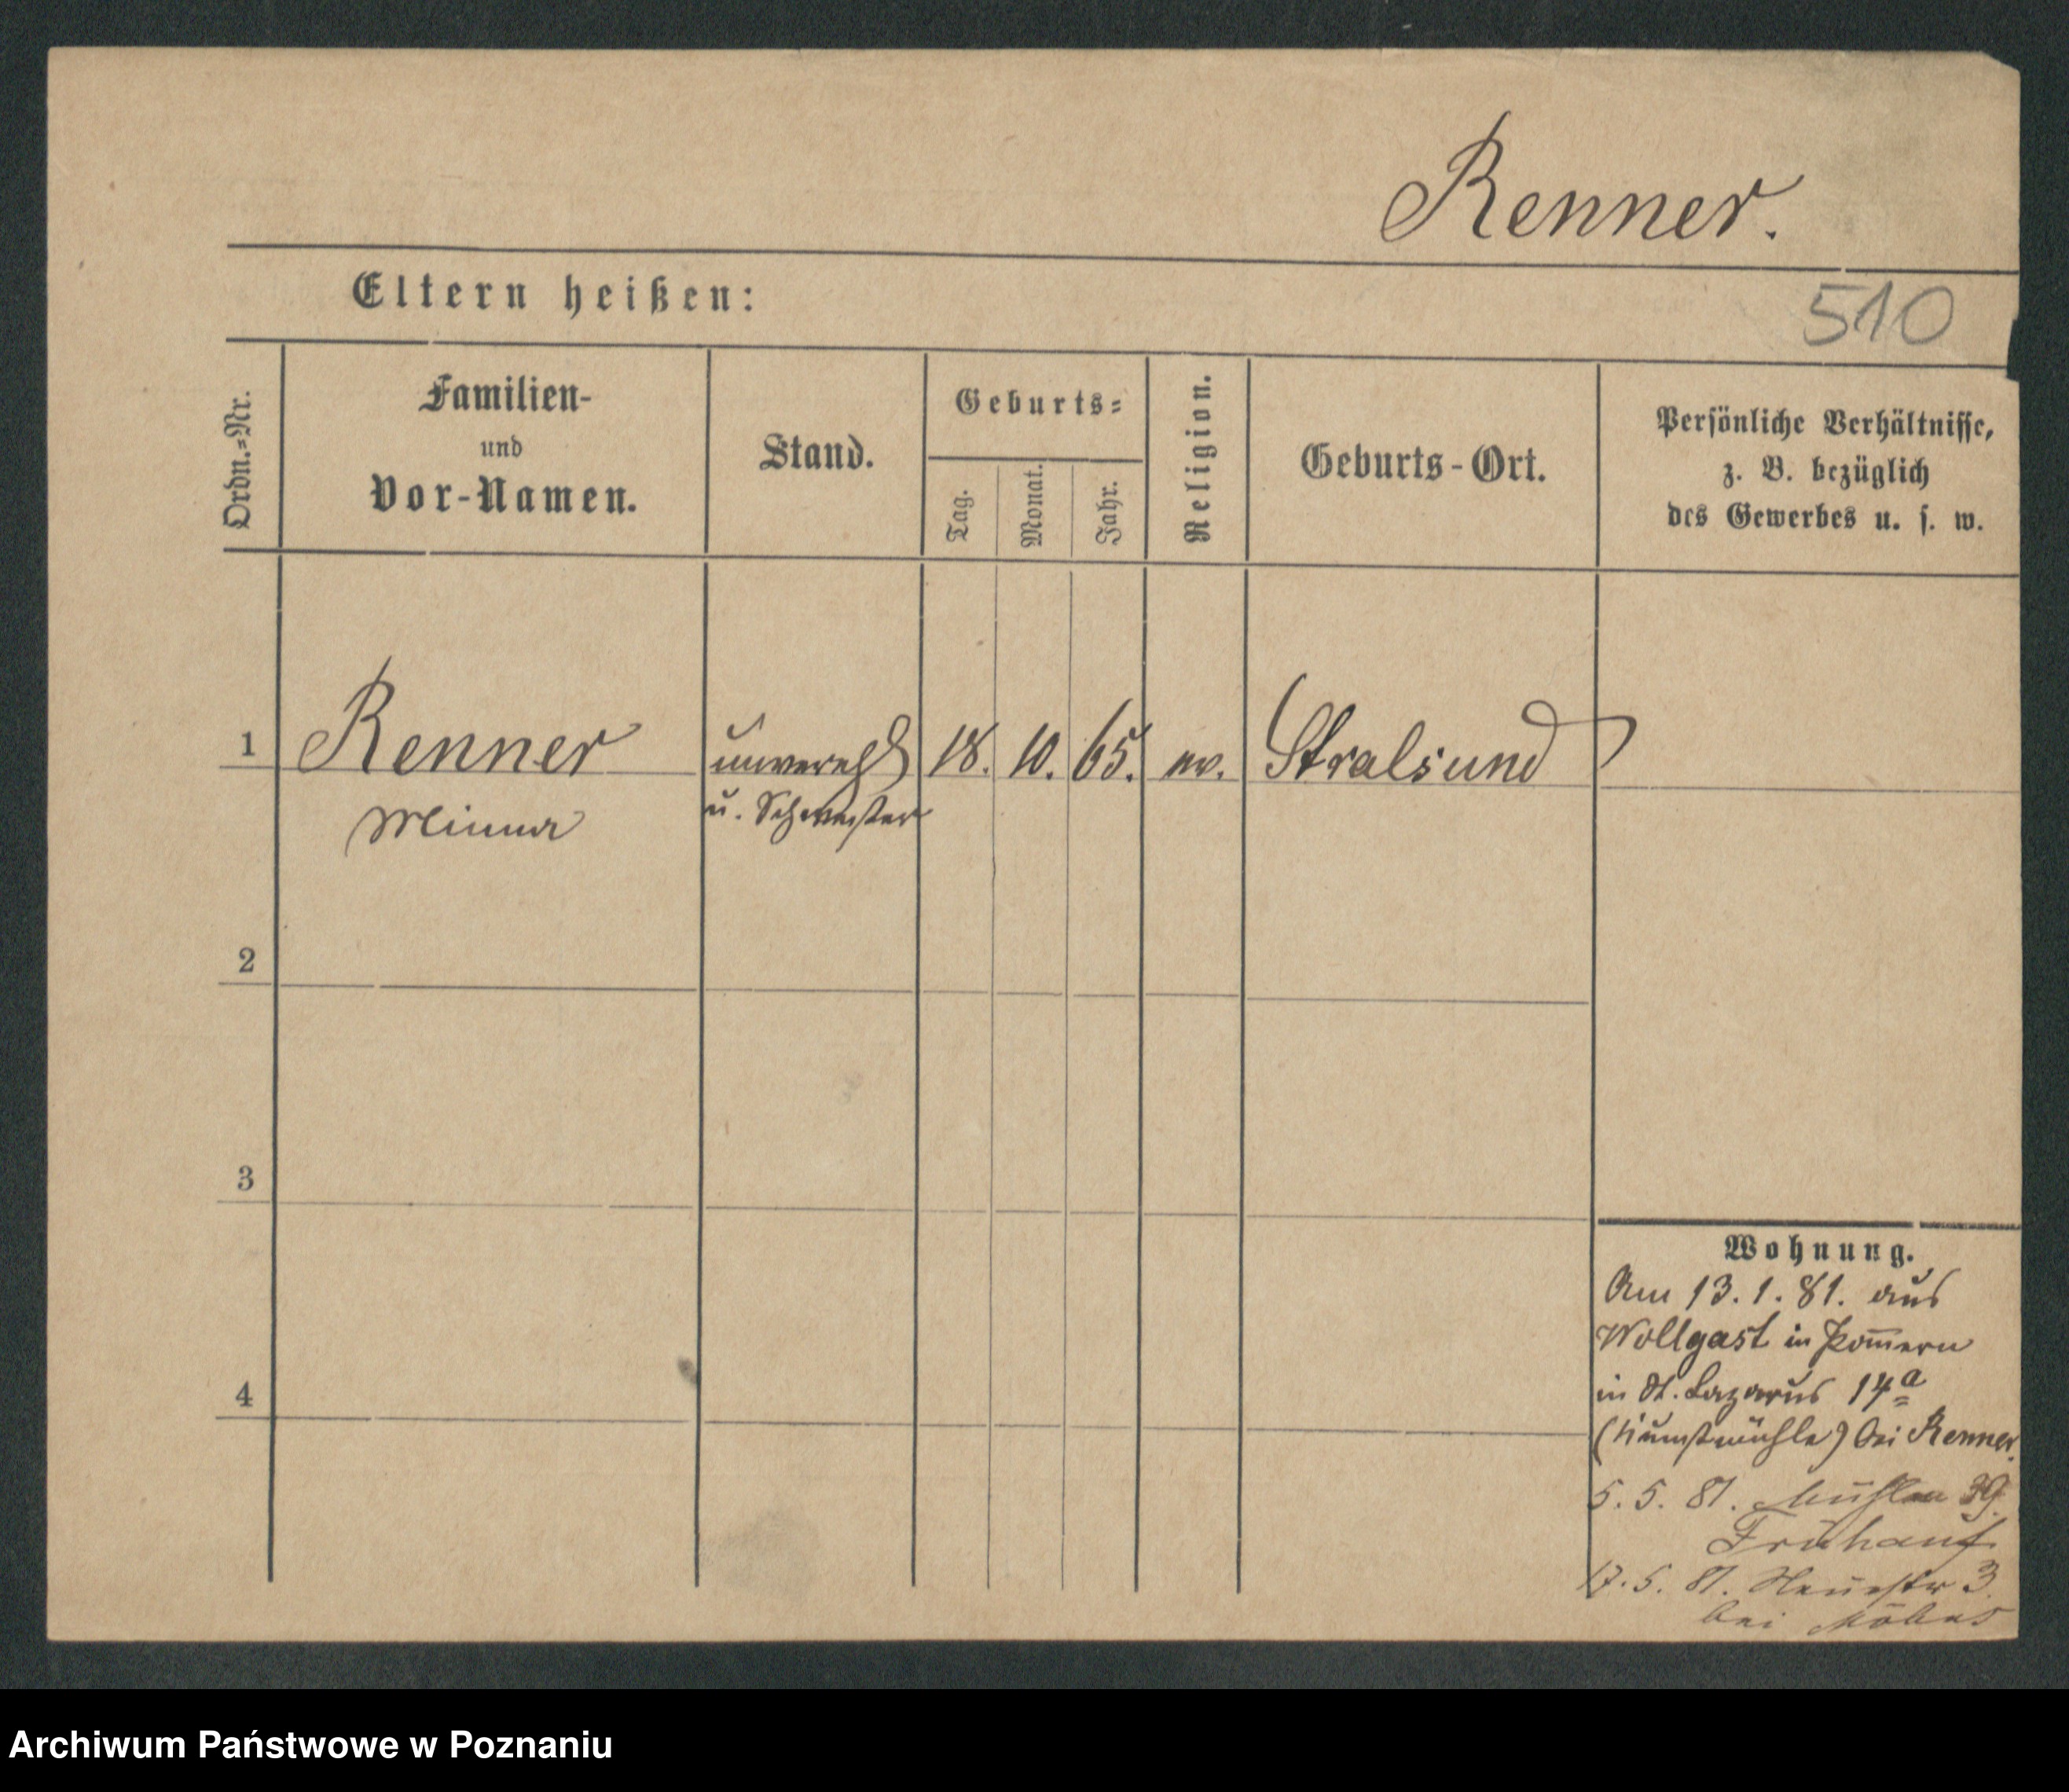 Renner.
Eltern heißen:
510
Ordn.-Nr.
Familien-
und
Vor-Namen.
Stand.
Geburts-
Tag.
Monat.
Jahr.
Religion.
Geburts-Ort.
Persönliche Verhältnisse,
z. B. bezüglich
des Gewerbes u. s. w.
1 Renner unverehl 18. 10. 65. ev. Stralsund
Minna u. Schwester
2
3
4
Wohnung.
Am 13. 1. 81. aus
Wollgast in Pom̄ern
in St. Lazarus 14a
(Kunstmühle) bei Renner.
5. 5. 81. Mühlen 39.
Frühauf
17. 5. 81. Neuestr 3.
bei
Archiwum Państwowe w Poznaniu